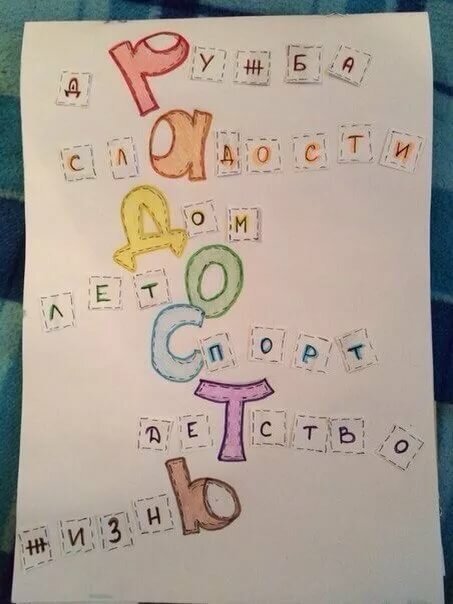 дРУЖБА
слаДОСТИ
Дом
ЛЕТО
СПОРТ
ДЕТСТВО
жизнь